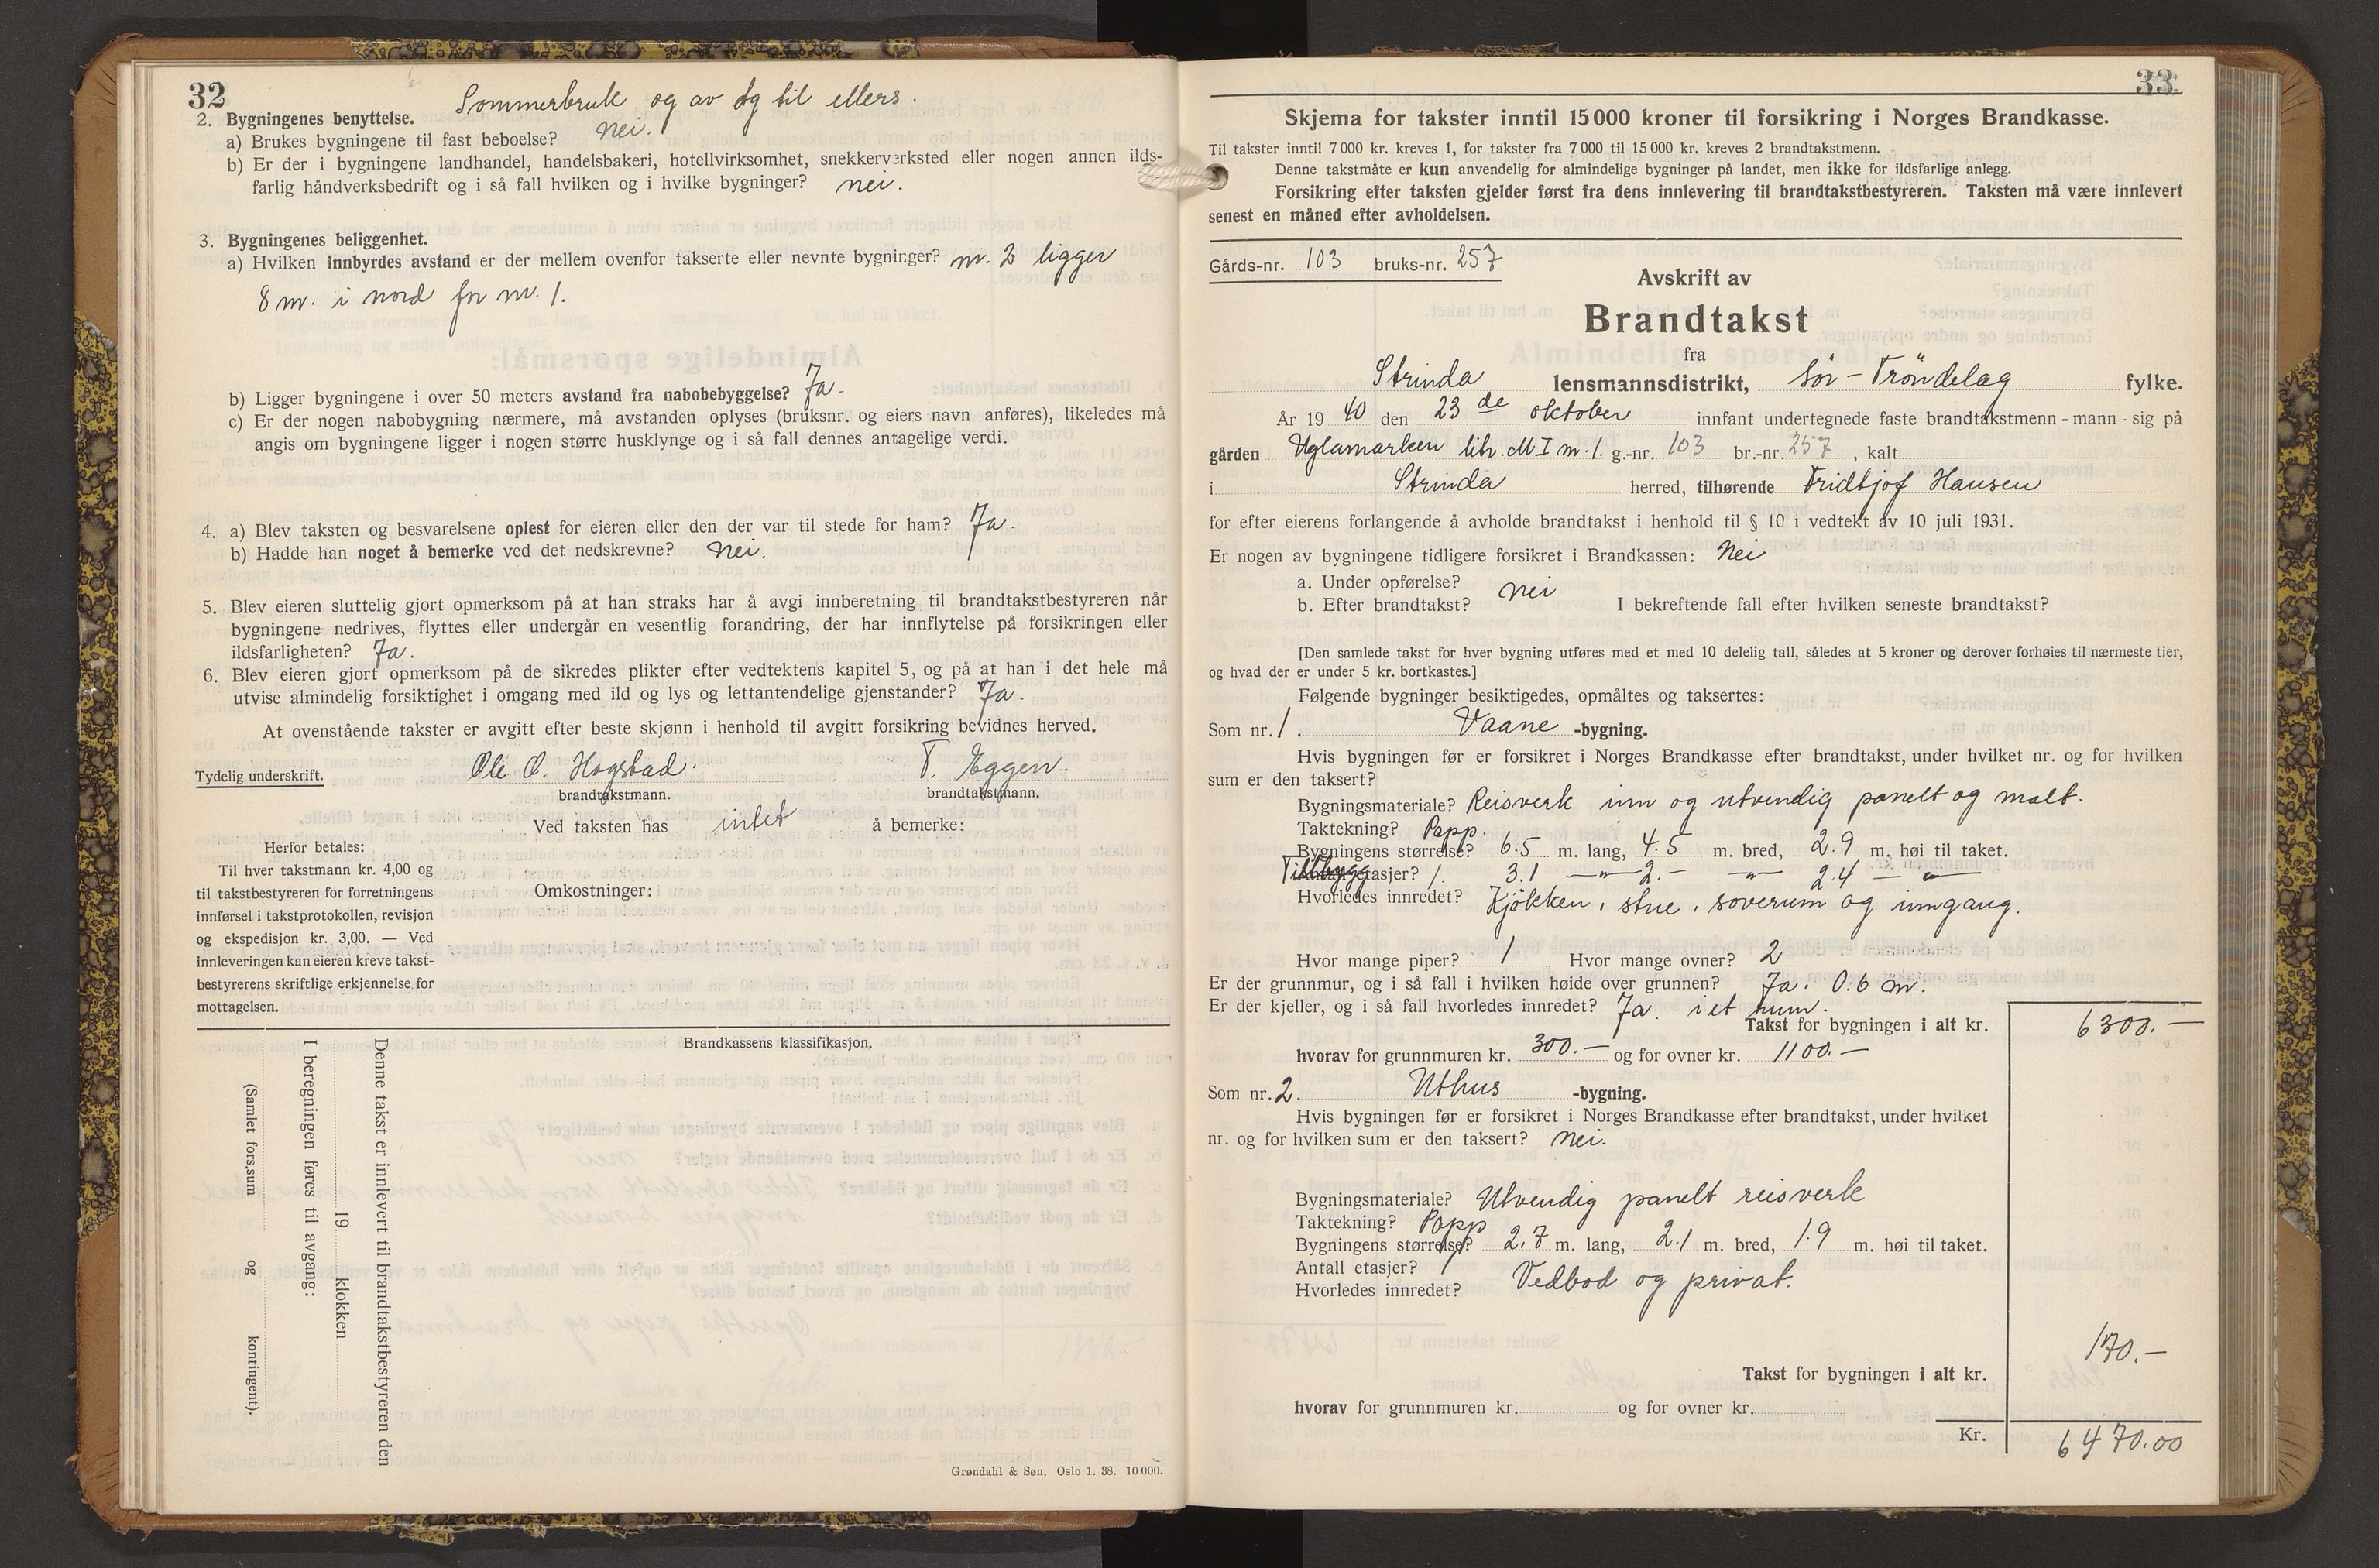 32
Sommerbruk og av og til ellers.
2. Bygningenes benyttelse.
a) Brukes bygningene til fast beboelse? Nei.
b) Er der i bygningene landhandel, handelsbakeri, hotellvirksomhet, snekkerverksted eller nogen annen ilds-
farlig håndverksbedrift og i så fall hvilken og i hvilke bygninger? nei.
3. Bygningenes beliggenhet.
a) Hvilken innbyrdes avstand er der mellem ovenfor takserte eller nevnte bygninger? nr. 2 ligger
8 m. i nord for nr. 1.
b) Ligger bygningene i over 50 meters avstand fra nabobebyggelse? Ja.
c) Er der nogen nabobygning nærmere, må avstanden oplyses (bruksnr. og eiers navn anføres), likeledes må
angis om bygningene ligger i nogen større husklynge og i så fall dennes antagelige verdi.
4. a) Blev taksten og besvarelsene oplest for eieren eller den der var til stede for ham? Ja.
b) Hadde han noget å bemerke ved det nedskrevne? Nei.
5. Blev eieren sluttelig gjort opmerksom på at han straks har å avgi innberetning til brandtakstbestyreren når
bygningene nedrives, flyttes eller undergår en vesentlig forandring, der har innflytelse på forsikringen eller
ildsfarligheten? Ja.
6. Blev eieren gjort opmerksom på de sikredes plikter efter vedtektens kapitel 5, og på at han i det hele må
utvise almindelig forsiktighet i omgang med ild og lys og lettantendelige gjenstander? Ja.
At ovenstående takster er avgitt efter beste skjønn i henhold til avgitt forsikring bevidnes herved.
Tydelig underskrift. Ole O. Hogstad. T. Eggen.
brandtakstmann. brandtakstmann.
Ved taksten has intet å bemerke:
Herfor betales:
Til hver takstmann kr. 4,00 og
til takstbestyreren for forretningens
innførsel i takstprotokollen, revisjon
og ekspedisjon kr. 3,00. — Ved
innleveringen kan eieren kreve takst-
bestyrerens skriftlige erkjennelse for
mottagelsen.
Omkostninger:
Brandkassens klassifikasjon.
Denne takst er innlevert til brandtakstbestyreren den
19 klokken
I beregningen føres til avgang:
(Samlet fors.sum og kontingent).
Grøndahl & Søn. Oslo 1. 38. 10 000.
33
Skjema for takster inntil 15 000 kroner til forsikring i Norges Brandkasse.
Til takster inntil 7 000 kr. kreves 1, for takster fra 7 000 til 15 000 kr. kreves 2 brandtakstmenn.
Denne takstmåte er kun anvendelig for almindelige bygninger på landet, men ikke for ildsfarlige anlegg.
Forsikring efter taksten gjelder først fra dens innlevering til brandtakstbestyreren. Taksten må være innlevert
senest en måned efter avholdelsen.
Gårds-nr. 103 bruks-nr. 257
Avskrift av
Brandtakst
fra
Strinda lensmannsdistrikt, Sør-Trøndelag fylke.
År 1940 den 23de oktober innfant undertegnede faste brandtakstmenn - mann - sig på
gården Uglamarken litr. M I nr. 1. g.-nr. 103 br.-nr. 257, kalt
i Strinda herred, tilhørende Fridtjof Hansen
for efter eierens forlangende å avholde brandtakst i henhold til § 10 i vedtekt av 10 juli 1931.
Er nogen av bygningene tidligere forsikret i Brandkassen: Nei
a. Under opførelse? nei
b. Efter brandtakst? I bekreftende fall efter hvilken seneste brandtakst?
[Den samlede takst for hver bygning utføres med et med 10 delelig tall, således at 5 kroner og derover forhøies til nærmeste tier,
og hvad der er under 5 kr. bortkastes.]
Følgende bygninger besiktigedes, opmåltes og taksertes:
Som nr. 1. Vaane -bygning.
Hvis bygningen før er forsikret i Norges Brandkasse efter brandtakst, under hvilket nr. og for hvilken
sum er den taksert?
Bygningsmateriale? Reisverk inn og utvendig panelt og malt.
Taktekning? Papp.
Bygningens størrelse? 6.5 m. lang, 4.5 m. bred, 2.9 m. høi til taket.
Tilbygg etasjer? 1. 3.1 —"— 2.- —"— 2.4 — " —
Hvorledes innredet? Kjøkken, stue, soverum og inngang.
Hvor mange piper? 1 Hvor mange ovner? 2
Er der grunnmur, og i så fall i hvilken høide over grunnen? Ja. 0.6 m.
Er der kjeller, og i så fall hvorledes innredet? Ja. i et rum.
Takst for bygningen i alt kr. 6300.—
hvorav for grunnmuren kr. 300.— og for ovner kr. 1100.—
Som nr. 2. Uthus -bygning.
Hvis bygningen før er forsikret i Norges Brandkasse efter brandtakst, under hvilket
nr. og for hvilken sum er den taksert? Nei.
Bygningsmateriale? Utvendig panelt reisverk
Taktekning? Papp
Bygningens størrelse? 2.7 m. lang, 2.1 m. bred, 1.9 m. høi til taket.
Antall etasjer? 1
Hvorledes innredet? Vedbod og privat.
170.—
Takst for bygningen i alt kr.
hvorav for grunnmuren kr. og for ovner kr.
Kr. 6470.00